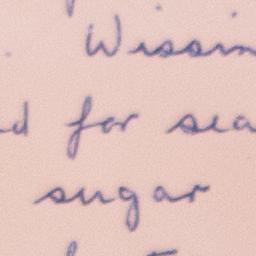 Wissin
d for sea
sugar